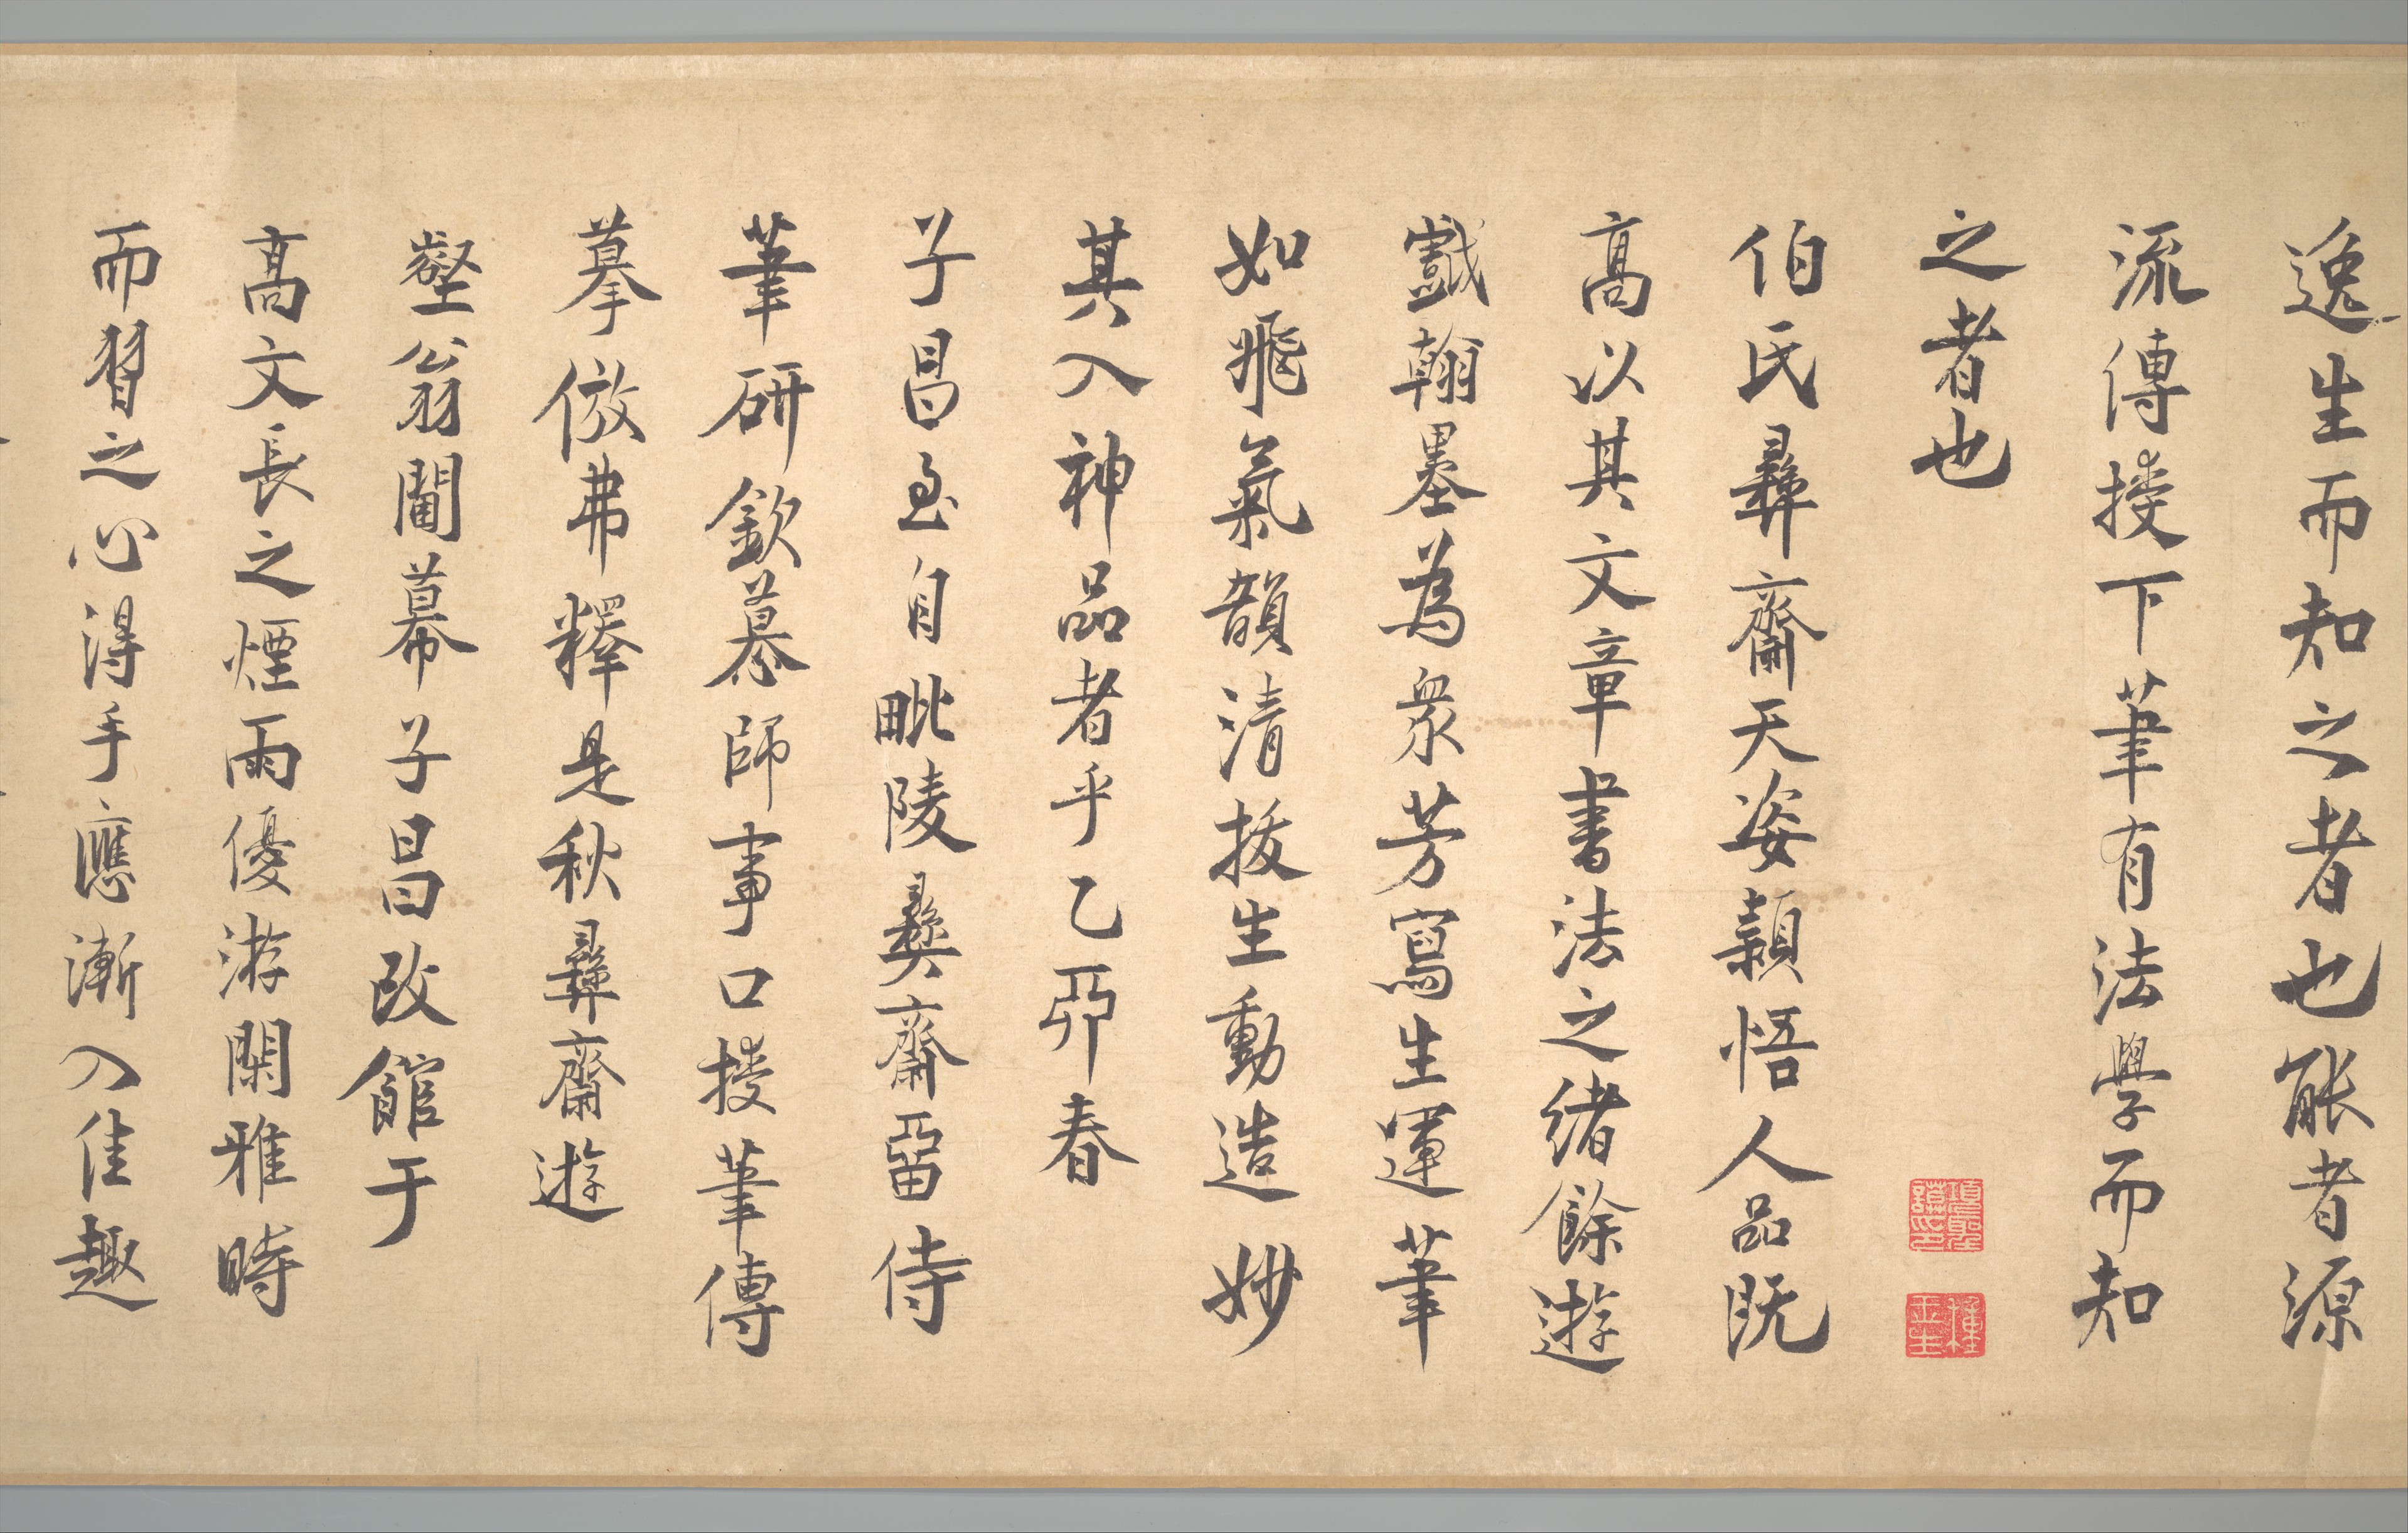 逸生而知之者也能者源
流傳授下筆有法學而知
之者也
項聖謨印
伯氏彝齋天姿穎悟人品既
高以其文章書法之緒餘遊
戲翰墨為衆芳寫生運筆
如飛氣韻清拔生動造妙
其入神品者乎乙丣春
子昌至自毗陵彝齋畱侍
筆研欽慕師事口授筆傳
摹倣弗釋是秋彝齋遊
壑翁閫幕子昌改館于
髙文長之煙雨優游閑雅時
而習之心得手應漸入佳趣